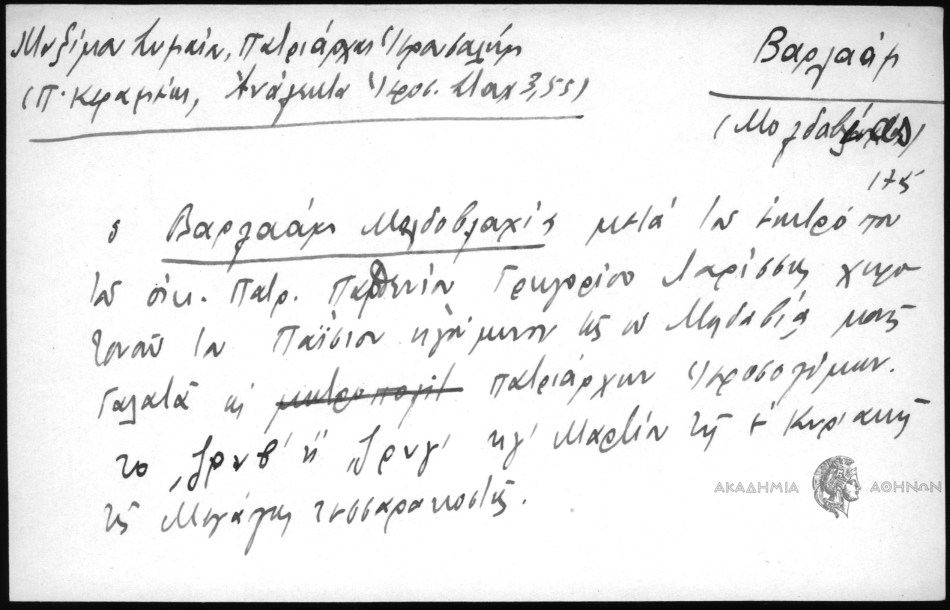 Μαξίμου Συμαίου, Πατριάρχαι Ἱεροσολύμ
(Π. Κεραμέως, Ἀνάλεκτα Ἱεροσ. Σταχ 3,55)
Βαρλαάμ
(Μολδαβίας)
175
ὁ Βαρλαάμ Μολδοβλαχίας μετά τοῦ ἐπιτρόπου
τοῦ οἰκ. Πατρ. Παρθενίου Γρηγορίου Λαρίσσης χειρο
τονοῦν τόν Παΐσιον ἡγούμενον τῆς ἐν Μολδαβίᾳ μονῆς
Γαλατᾶ εἰς μητροπολίτ πατριάρχην Ἱεροσολύμων.
τό ͵ζρνβ' ἤ ͵ζρνγ' κγ' Μαρτίου τῆς Κυριακῆς
τῆς Μεγάλης τεσσαρακοστῆς.
ΑΚΑΔΗΜΙΑ ΑΘΗΝΩΝ